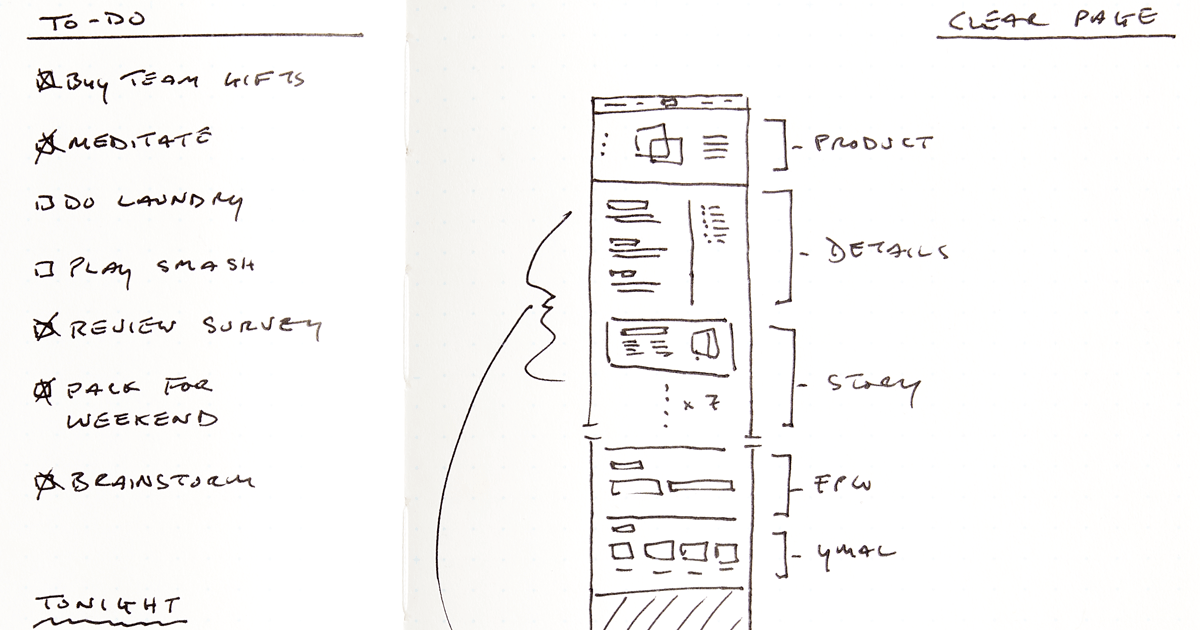 TO-DO
BUY TEAM GIFTS
MEDITATE
DO LAUNDRY
PLAY SMASH
REVIEW SURVEY
PACK FOR
WEEKEND
BRAINSTORM
TONIGHT
CLEAR PAGE
PRODUCT
DETAILS
STORY
x 7
FPW
YMAL